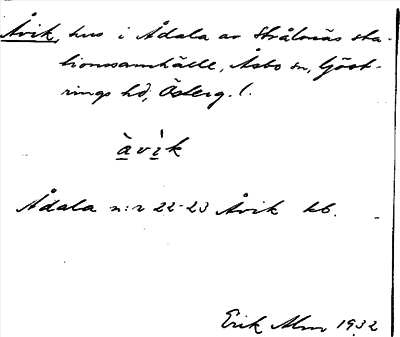 Åvik, hus i Ådala av Strålsnäs sta-
tionssamhälle, Åsbo sn, Göst-
rings hd, Österg. l.
àvìk
Ådala n:r 22-23 Åvik kb.
Erik Alm 1932